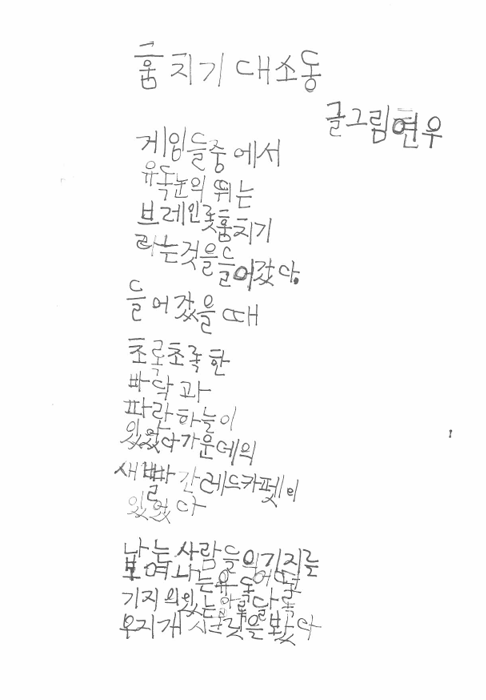 훔치기 대소동
글그림현우
게임들중에서
유독눈의 뛰는
브레인롯훔치기
라는것을들어갔다.
들어갔을때
초록초록한
바닥과
파란하늘이
있었다가운데의
새빨간레드카펫이
있었다
나는 사람들의기지를
보여나는유독
기지의있는알록달록
무지개 시크릿을봤다